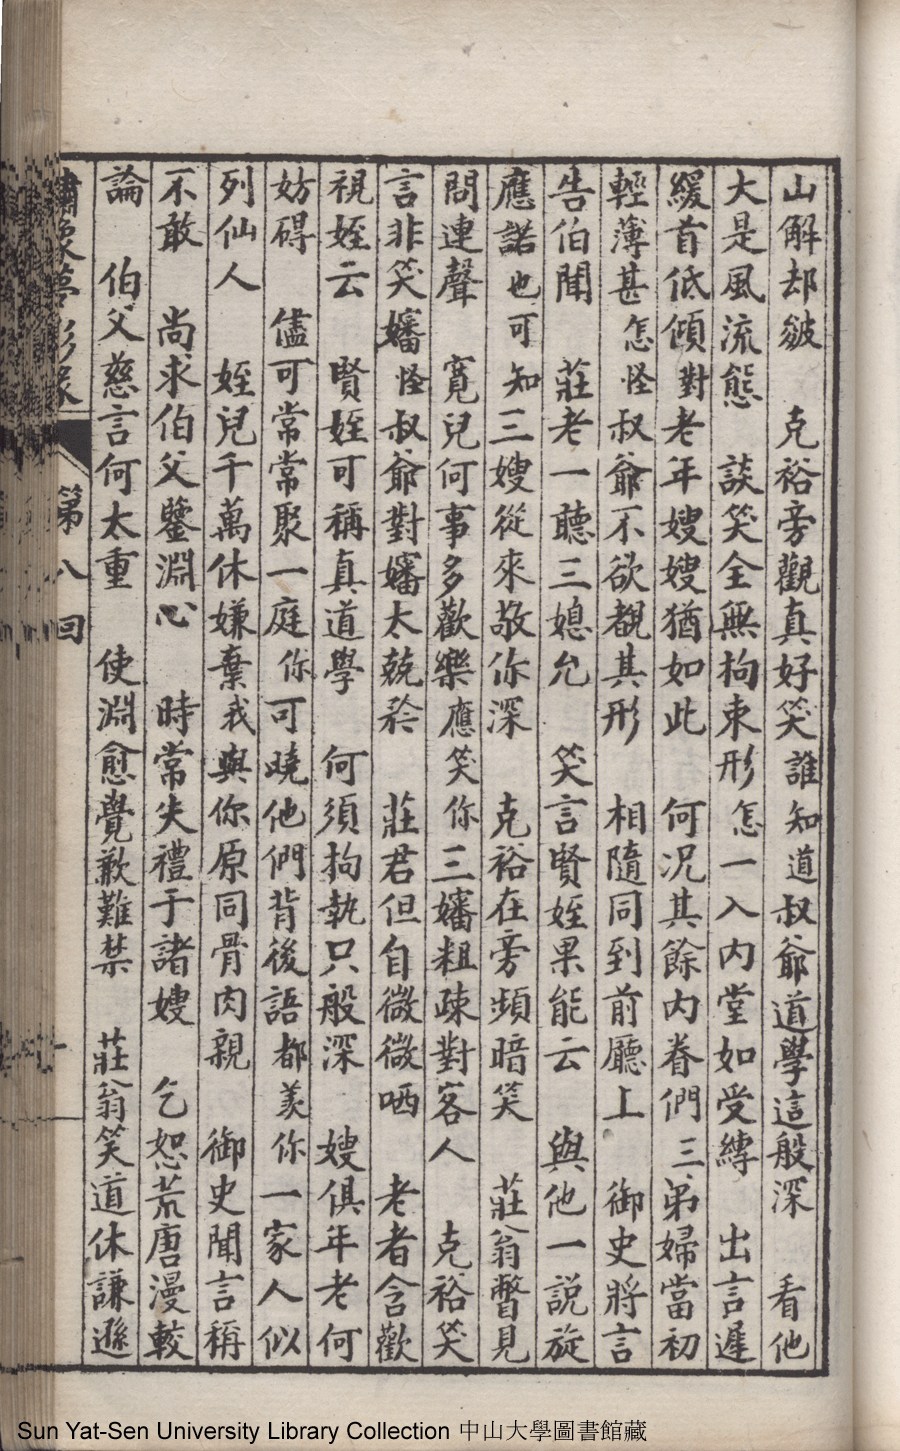 山解却皴　克裕旁觀真好笑誰知道叔爺道學這般深　看他
大是風流態　談笑全無拘束形怎一入內堂如受縛　出言遲
緩首低傾對老年嫂嫂猶如此　何況其餘內眷們三弟婦當初
輕薄甚怎怪叔爺不欲覩其形　相隨同到前廳上　御史將言
告伯聞　莊老一聽三媳允　笑言賢姪果能云　與他一說旋
應諾也可知三嫂從來敬你深　克裕在旁頻暗笑　莊翁瞥見
問連聲　寬兒何事多歡樂應笑你三嬸粗疎對客人　克裕笑
言非笑嬸怪叔爺對嬸太兢矜　莊君但自微微哂　老者含歡
視姪云　賢姪可稱真道學　何須拘執只般深　嫂俱年老何
妨碍　儘可常常聚一庭你可曉他們背後語都羡你一家人似
列仙人　姪兒千萬休嫌棄我與你原同骨肉親　御史聞言稱
不敢　尚求伯父鑒淵心　時常失禮于諸嫂　乞恕荒唐漫較
論　伯父慈言何太重　使淵愈覺歉難禁　莊翁笑道休謙遜
繡像夢影緣　第八回
Sun Yat-Sen University Library Collection 中山大學圖書館藏